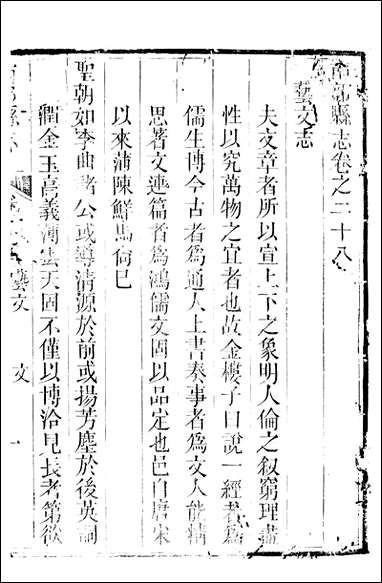 南部縣志卷之二十八
藝文志
夫文章者所以宣上下之象明人倫之叙窮理盡
性以究萬物之宜者也故金樓子曰說一經者爲
儒生博今古者爲通人上書奏事者爲文人能精
思著文連篇者爲鴻儒文固以品定也邑自唐宋
以來蒲陳鮮馬尙已
聖朝如李曲諸公或導清源於前或揚芳塵於後英詞
潤金玉高義薄雲天固不僅以博洽見長者第欲
藝文 文 一